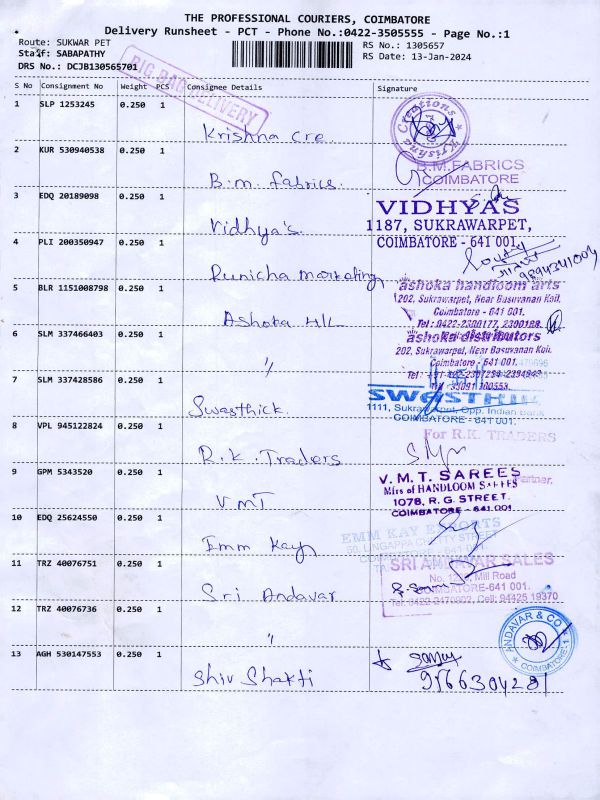 THE PROFESSIONAL COURIERS, COIMBATORE
Delivery Runsheet - PCT - Phone No.:0422-3505555 - Page No.:1
Route: SUKWAR PET
RS No.: 1305657
Staff: SABAPATHY
RS Date: 13-Jan-2024
DRS No.: DCJB130565701
BIG BAG DELIVERY
S No Consignment No Weight PCS Consignee Details Signature
1 SLP 1253245 0.250 1
Krishna Cre
Creations Krishna
2 KUR 530940538 0.250 1
B.m. fabrics.
B.M.FABRICS
COIMBATORE
3 EDQ 20189098 0.250 1
Vidhya's
VIDHYAS
1187, SUKRAWARPET,
COIMBATORE - 641 001.
4 PLI 200350947 0.250 1
Runicha marketing
5 BLR 1151008798 0.250 1
Ashoka H/L
ashoka handloom arts
202, Sukrawarpet, Near Basuvanan Koil,
Coimbatore - 641 001.
Tel : 0422-2300177,
6 SLM 337466403 0.250 1
"
ashoka distributors
202, Sukrawarpet, Near Basuvanan Koil,
Coimbatore - 641 001.
7 SLM 337428586 0.250 1
Swasthick.
SWASTHIK
1111, Sukrawarpet, Opp. Indian Bank
COIMBATORE - 641 001.
8 VPL 945122824 0.250 1
R.K. Traders
For R.K. TRADERS
Partner.
9 GPM 5343520 0.250 1
VMT
V.M.T. SAREES
Mfrs of HANDLOOM SAREES
1078, R.G. STREET.
COIMBATORE - 641 001.
10 EDQ 25624550 0.250 1
Emm Kay
EMM KAY EXPORTS
11 TRZ 40076751 0.250 1
Sri Andavar
SRI ANDAVAR SALES
Mill Road
COIMBATORE-641 001.
Tel: 0422-2470602, Cell: 94425 19370
12 TRZ 40076736 0.250 1
"
ANDAVAR & CO
COIMBATORE-1
13 AGH 530147553 0.250 1
Shiv Shakti